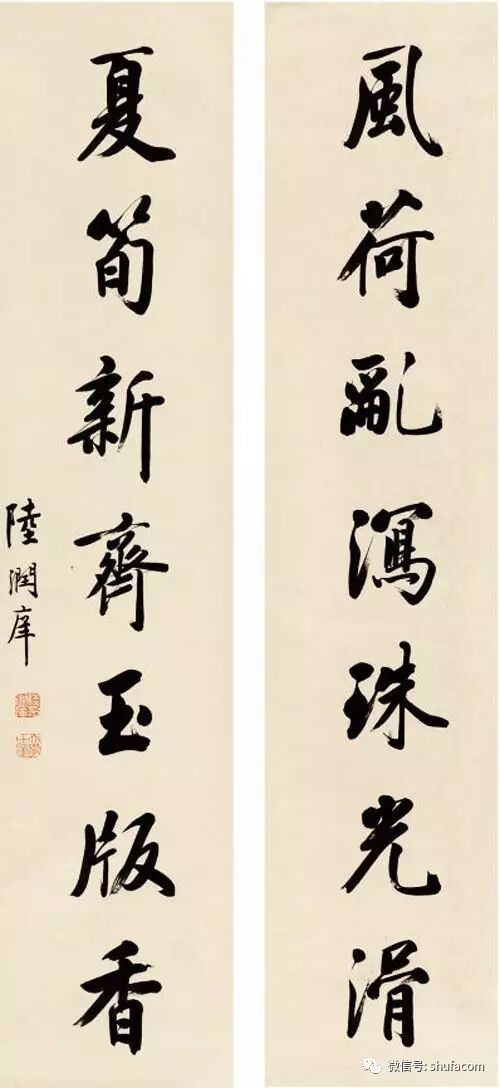 風荷亂瀉珠光滑
夏筍新齊玉版香
陸潤庠
微信号: shufacom